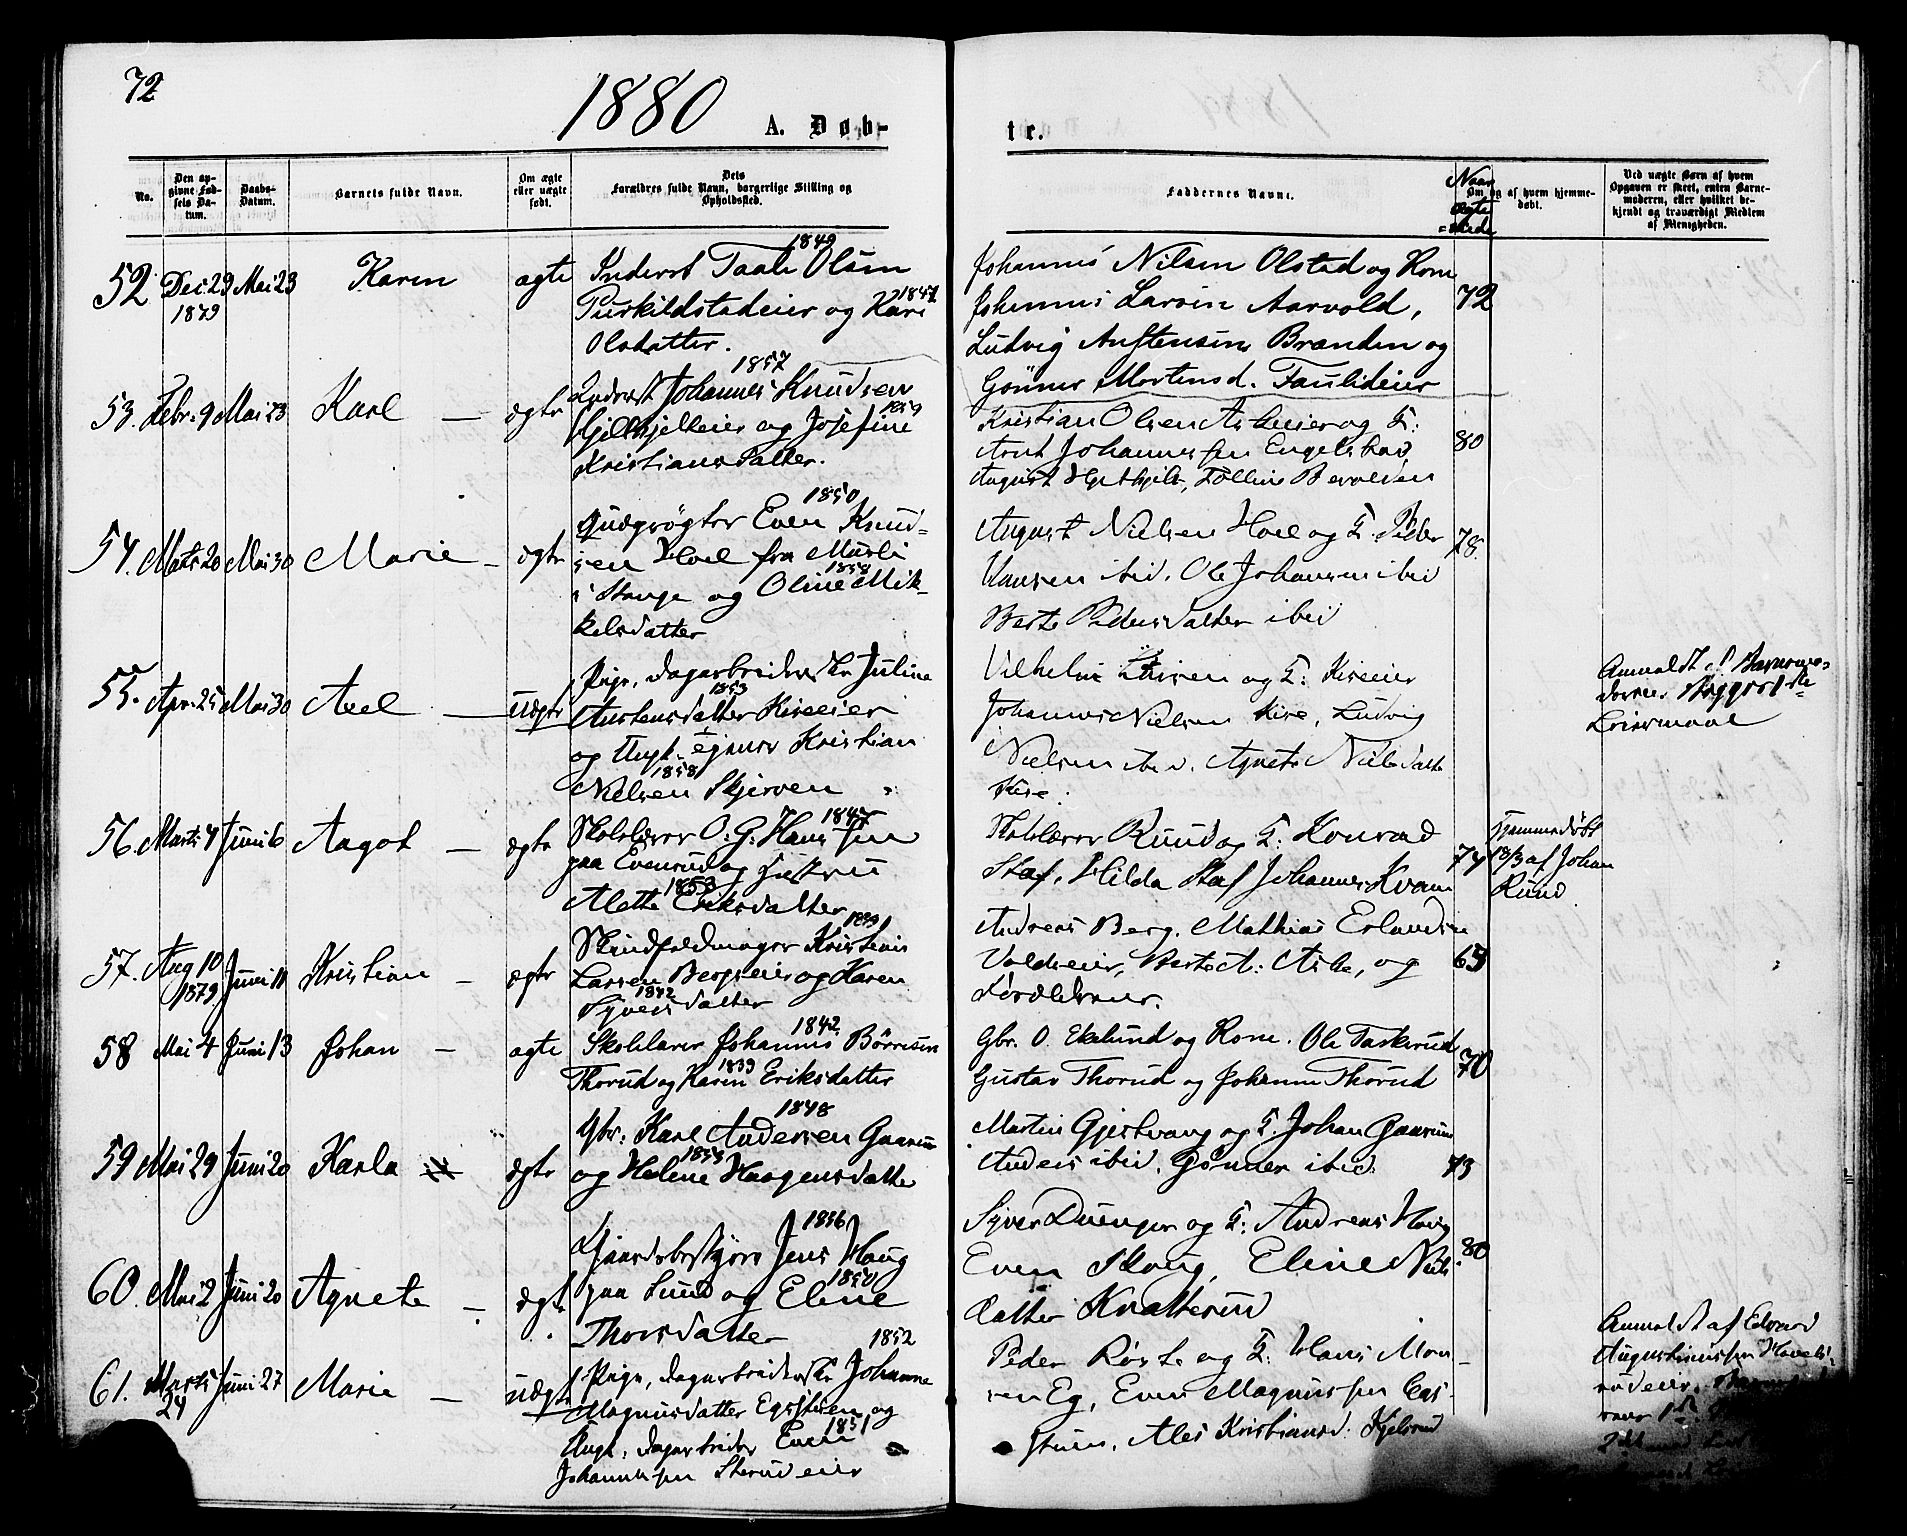 72
1880
A. Døb-
te.
No.
Den opgivne Fødsels Datum.
Daabs-Datum.
Barnets fulde Navn.
Om ægte eller uægte født.
Dets Forældres fulde Navn, borgerlige Stilling og Opholdsted.
Faddernes Navne.
Naar ægteviede
Om og af hvem hjemmedøbt.
Ved uægte Børn af hvem Opgaven er skeet, enten Barnemoderen, eller hvilket bekjendt og troværdigt Medlem af Menigheden.
52 Dec 29 1879 Mai 23 Karen ægte
Inderst Taale Olsen 1849
eier og Kari 1847
Olsdatter.
Johannes Nilsen Olstad og Kone
Johannes Larsen Aarvold, 72
Ludvig Austensen Brænden og
Gönner Mortensd. eier
53. Febr. 9 Mai 23 Karl — ægte
Inderst Johannes Knudsen 1857
eier og Josefine 1859
Kristiansdatter.
Kristian Olsen eier og F:
Arnt Johannessen Engelstad, 80
August
54. Marts 20 Mai 30 Marie — ægte
Even Knud- 1850
sen Hoel fra
i Stange og Oline Mik- 1858
kelsdatter
August Nielsen Hoel og F. Peder 78.
Hansen ibid. Ole Johansen ibid
Berte Pedersdatter ibid
55. Apr. 25 Mai 30 Axel — uægte
Pige, dagarbeiderske Juline
Austensdatter Kiseeier 1853
og Ungk. Kristian
Nielsen Skjerven 1858
Vilhelm og F: Kiseeier
Johannes Nielsen Kise, Ludvig
Nielsen ibid. Agnete Nielsdatte
Kise.
Anmeldt af Barnemo-
deren
Leiermaal
56. Marts 4 Juni 6 Aagot — ægte
Skolelærer O. G. Hanssen 1847
paa Evensrud og Hustru
Alette Eriksdatter 1853
Skolelærer Ruud og F: Konrad
Staf, Hilda Staf Johannes Kvam 74
Hjemmedøbt
18/3 af Johan
Ruud.
57. Aug 10 1879 Juni 11 Kristian — ægte
Skindfeldmager Kristian 1839
Larsen Bergseier og Karen
Syversdatter 1842
Andreas Berg. Mathias Erlandsen
eier, Berte A: og 69
Forældrene.
58 Mai 4 Juni 13 Johan — ægte
Skolelærer Johannes Börresen 1842
Thorud og Karen Eriksdatter 1839
Gbr. O. Ekelund og Kone. Ole Taskerud
Gustav Thorud og Johanne Thorud 70
59 Mai 29 Juni 20 Karla ægte
Gbr: Karl Andersen Gaarum 1848
og Helene Haagensdatter 1853
Martin Gjestvang og F. Johan Gaarum
Anders ibid. Gönner ibid. 73
60. Mai 2 Juni 20 Agnete — ægte
Gaardsbestyrer Jens Haug 1856
paa Lund og Eline 1850
Thorsdatter
Syver og F: Andreas Haug
Even Haug, Eline Niels- 80
datter Knatterud
61. Marts 24 Juni 27 Marie — uægte
Pige, dagarbeiderske Johanne 1852
Magnusdatter og
Ungk. dagarbeider Even 1851
Johannessen eier
Peder Röste og F: Hans Mon-
sen Eg, Even Magnussen Egs-
stuen. Kristiansd. Kjelsrud
Anmeldt af Edvard
Augustinussen